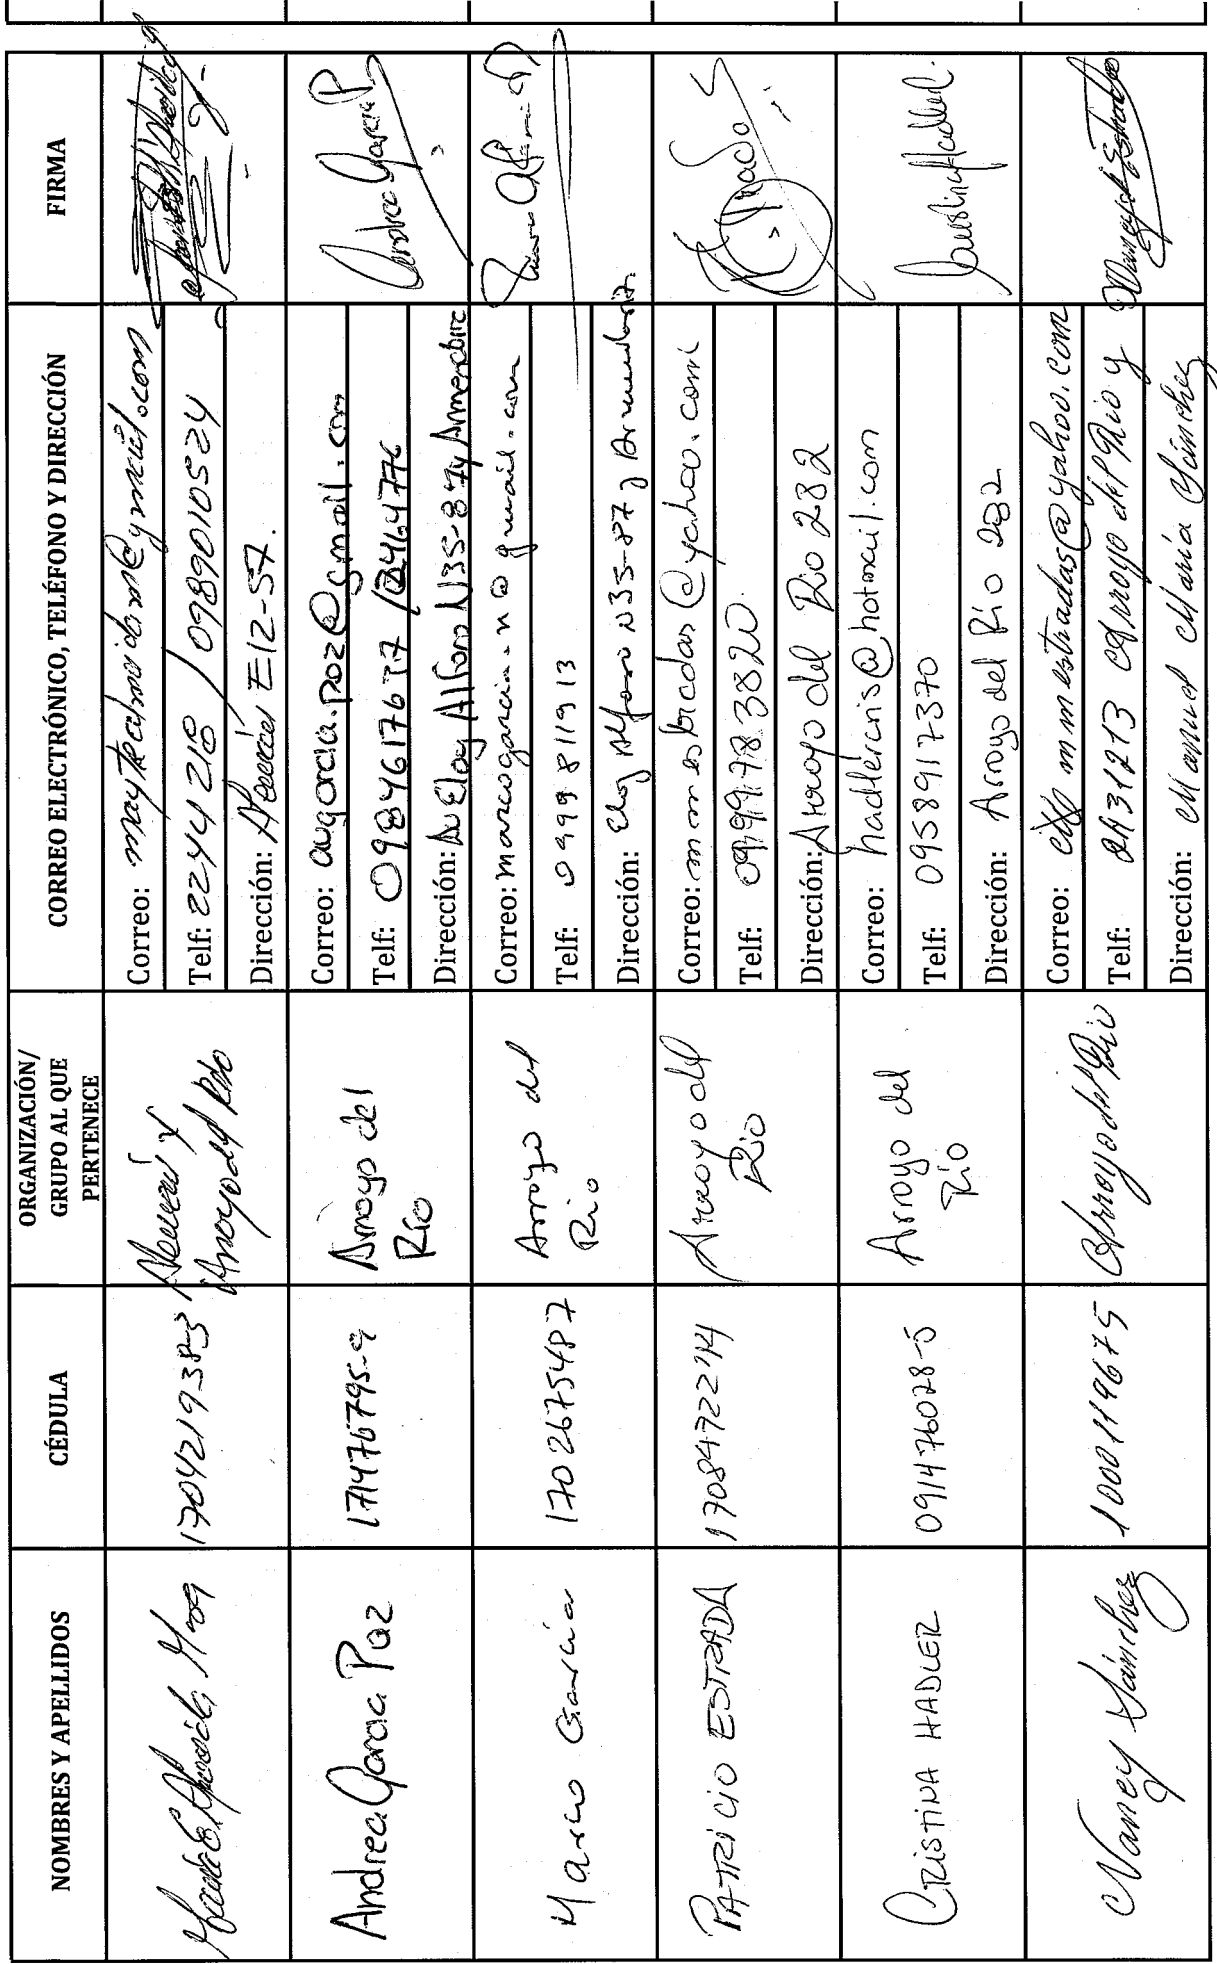 NOMBRES Y APELLIDOS
CÉDULA
ORGANIZACIÓN/
GRUPO AL QUE
PERTENECE
CORREO ELECTRÓNICO, TELÉFONO Y DIRECCIÓN
FIRMA
1704219383
Arroyo del Río
Correo:
Telf: 2244218 / 0989010524
Dirección: E12-57.
Andrea Garcia Paz
171476795-9
Arroyo del
Río
Correo: augarcia.paz@gmail.com
Telf: 0984617677 / 2464776
Dirección: Av Eloy Alfaro N35-87 y
Andrea Garcia P.
Marco García
1702675487
Arroyo del
Rio
Correo: marcogarcia.n@gmail.com
Telf: 0999811913
Dirección: Eloy Alfaro N35-87 y
PATRICIO ESTRADA
1708472214
Arroyo del
Rio
Correo: mmestradas@yahoo.com
Telf: 0999783820
Dirección: Arroyo del Rio 282
CRISTINA HADLER
091476028-5
Arroyo del
Río
Correo: hadlercris@hotmail.com
Telf: 0958917370
Dirección: Arroyo del Río 282
Nancy Sánchez
1000119675
Arroyo del Río
Correo: mmestradas@yahoo.com
Telf: 2431273 Arroyo del Río y
Dirección: Manuel María Sánchez